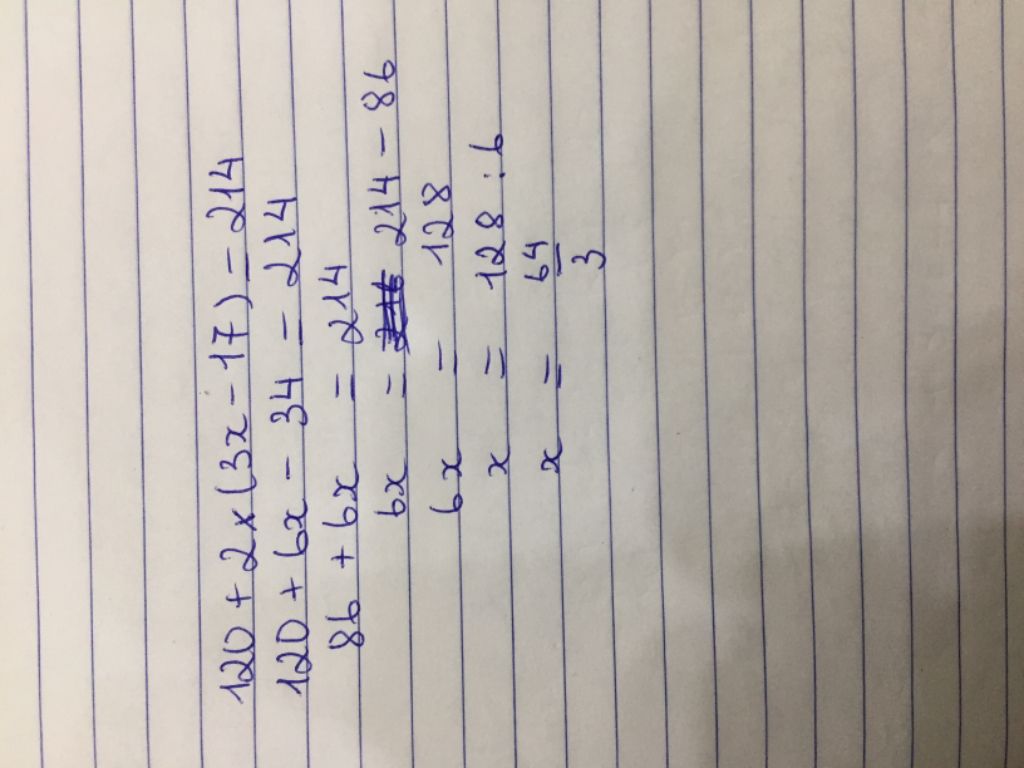 120 + 2 x (3x - 17) = 214
120 + 6x - 34 = 214
86 + 6x = 214
6x = 214 - 86
6x = 128
x = 128 : 6
x = 64/3